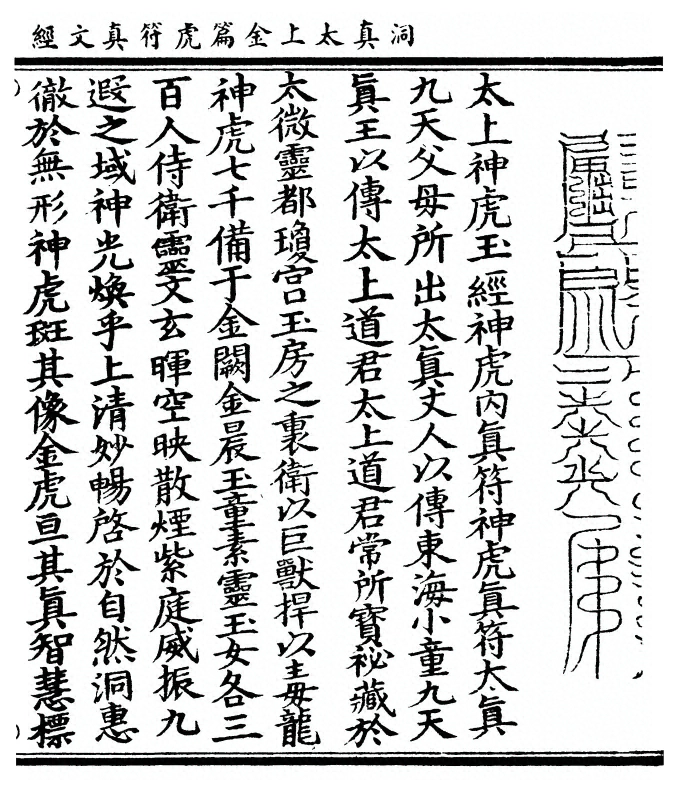 洞真太上金篇虎符真文經
太上神虎玉經神虎內眞符神虎眞符太眞
九天父母所出太眞丈人以傳東海小童九天
眞王以傳太上道君太上道君常所寶祕藏於
太微靈都瓊宮玉房之裏衛以巨獸捍以毒龍
神虎七千備于金闕金晨玉童素靈玉女各三
百人侍衛靈文玄暉空映散煙紫庭威振九
遐之域神光煥乎上清妙暢啓於自然洞惠
徹於無形神虎班其像金虎亘其眞智慧標